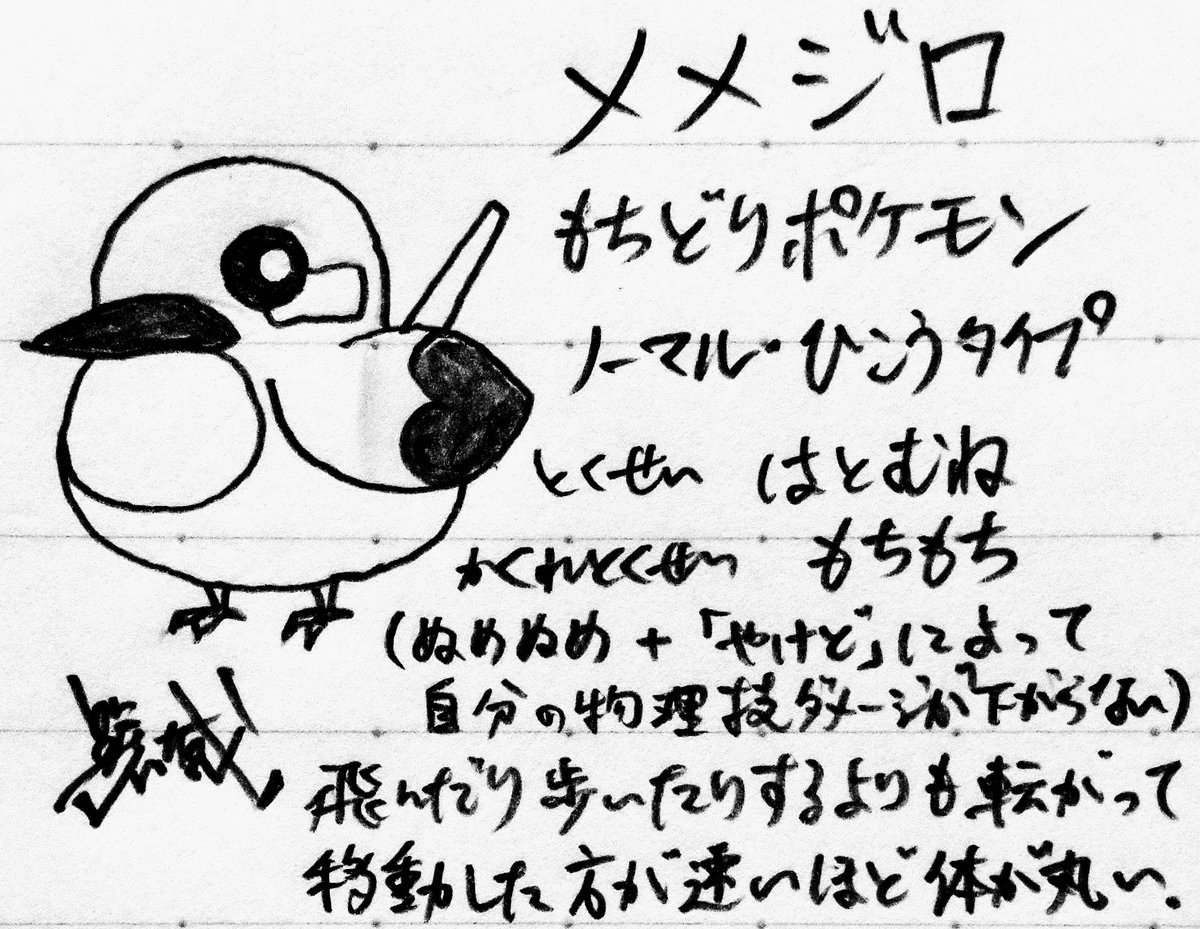 メメジロ
もちどりポケモン
ノーマル・ひこうタイプ
とくせい はとむね
かくれとくせい もちもち
(ぬめぬめ+「やけど」によって
自分の物理技ダメージが下がらない)
飛んだり歩いたりするよりも転がって
移動した方が速いほど体が丸い.